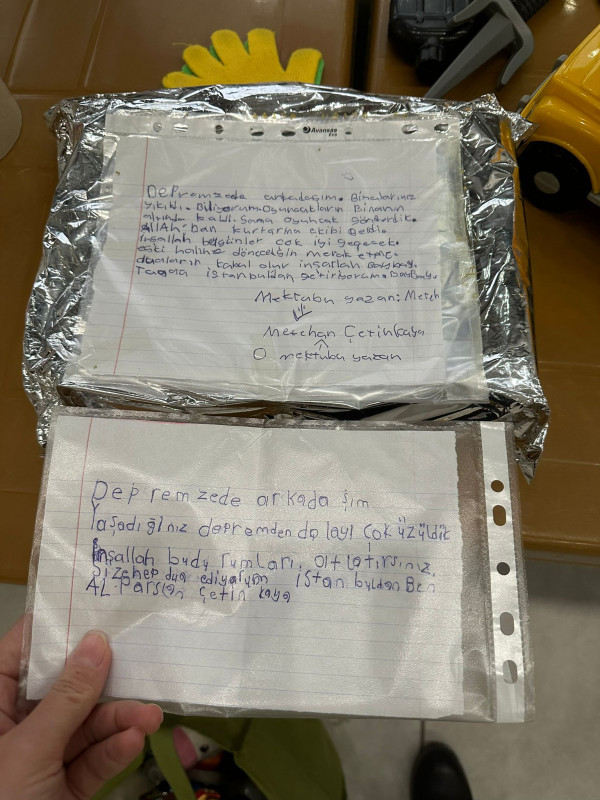 Avansas
Depremzede arkadaşım. Binalarınız
yıkıldı. Biliyorum. Oyuncakların Binanın
altında kaldı. Sana oyuncak gönderdik.
AllAh'dan kurtarma ekibi geldi.
inşallah bu günler çok iyi geçecek.
eski haline döneceğin merak etme.
olur inşallah
Taaaa istanbuldan getiriyorum.
Mektubu yazan: Merch
Merchan Çetinkaya
O mektubu yazan
Depremzede arkadaşım
Yaşadığınız depremden dolayı Çok üzüldük
İnşallah budu rumları. atlatırsınız.
Sizehep dua ediyorum istanbuldan Ben
AL parslan Çetin kaya